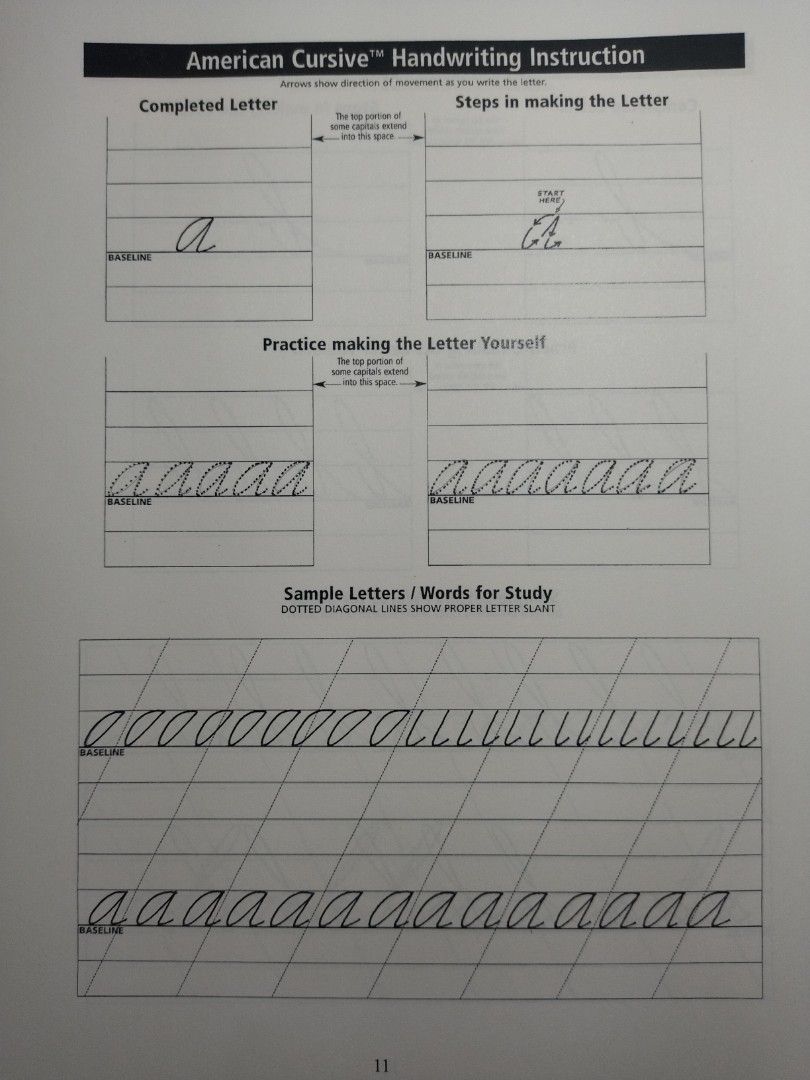 American Cursive™ Handwriting Instruction
Arrows show direction of movement as you write the letter.
Completed Letter
The top portion of
some capitals extend
into this space.
Steps in making the Letter
a
BASELINE
START
HERE
a
BASELINE
Practice making the Letter Yourself
The top portion of
some capitals extend
into this space.
a a a a a
BASELINE
a a a a a a a
BASELINE
Sample Letters / Words for Study
DOTTED DIAGONAL LINES SHOW PROPER LETTER SLANT
BASELINE
a a a a a a a a a a a a a a
BASELINE
11